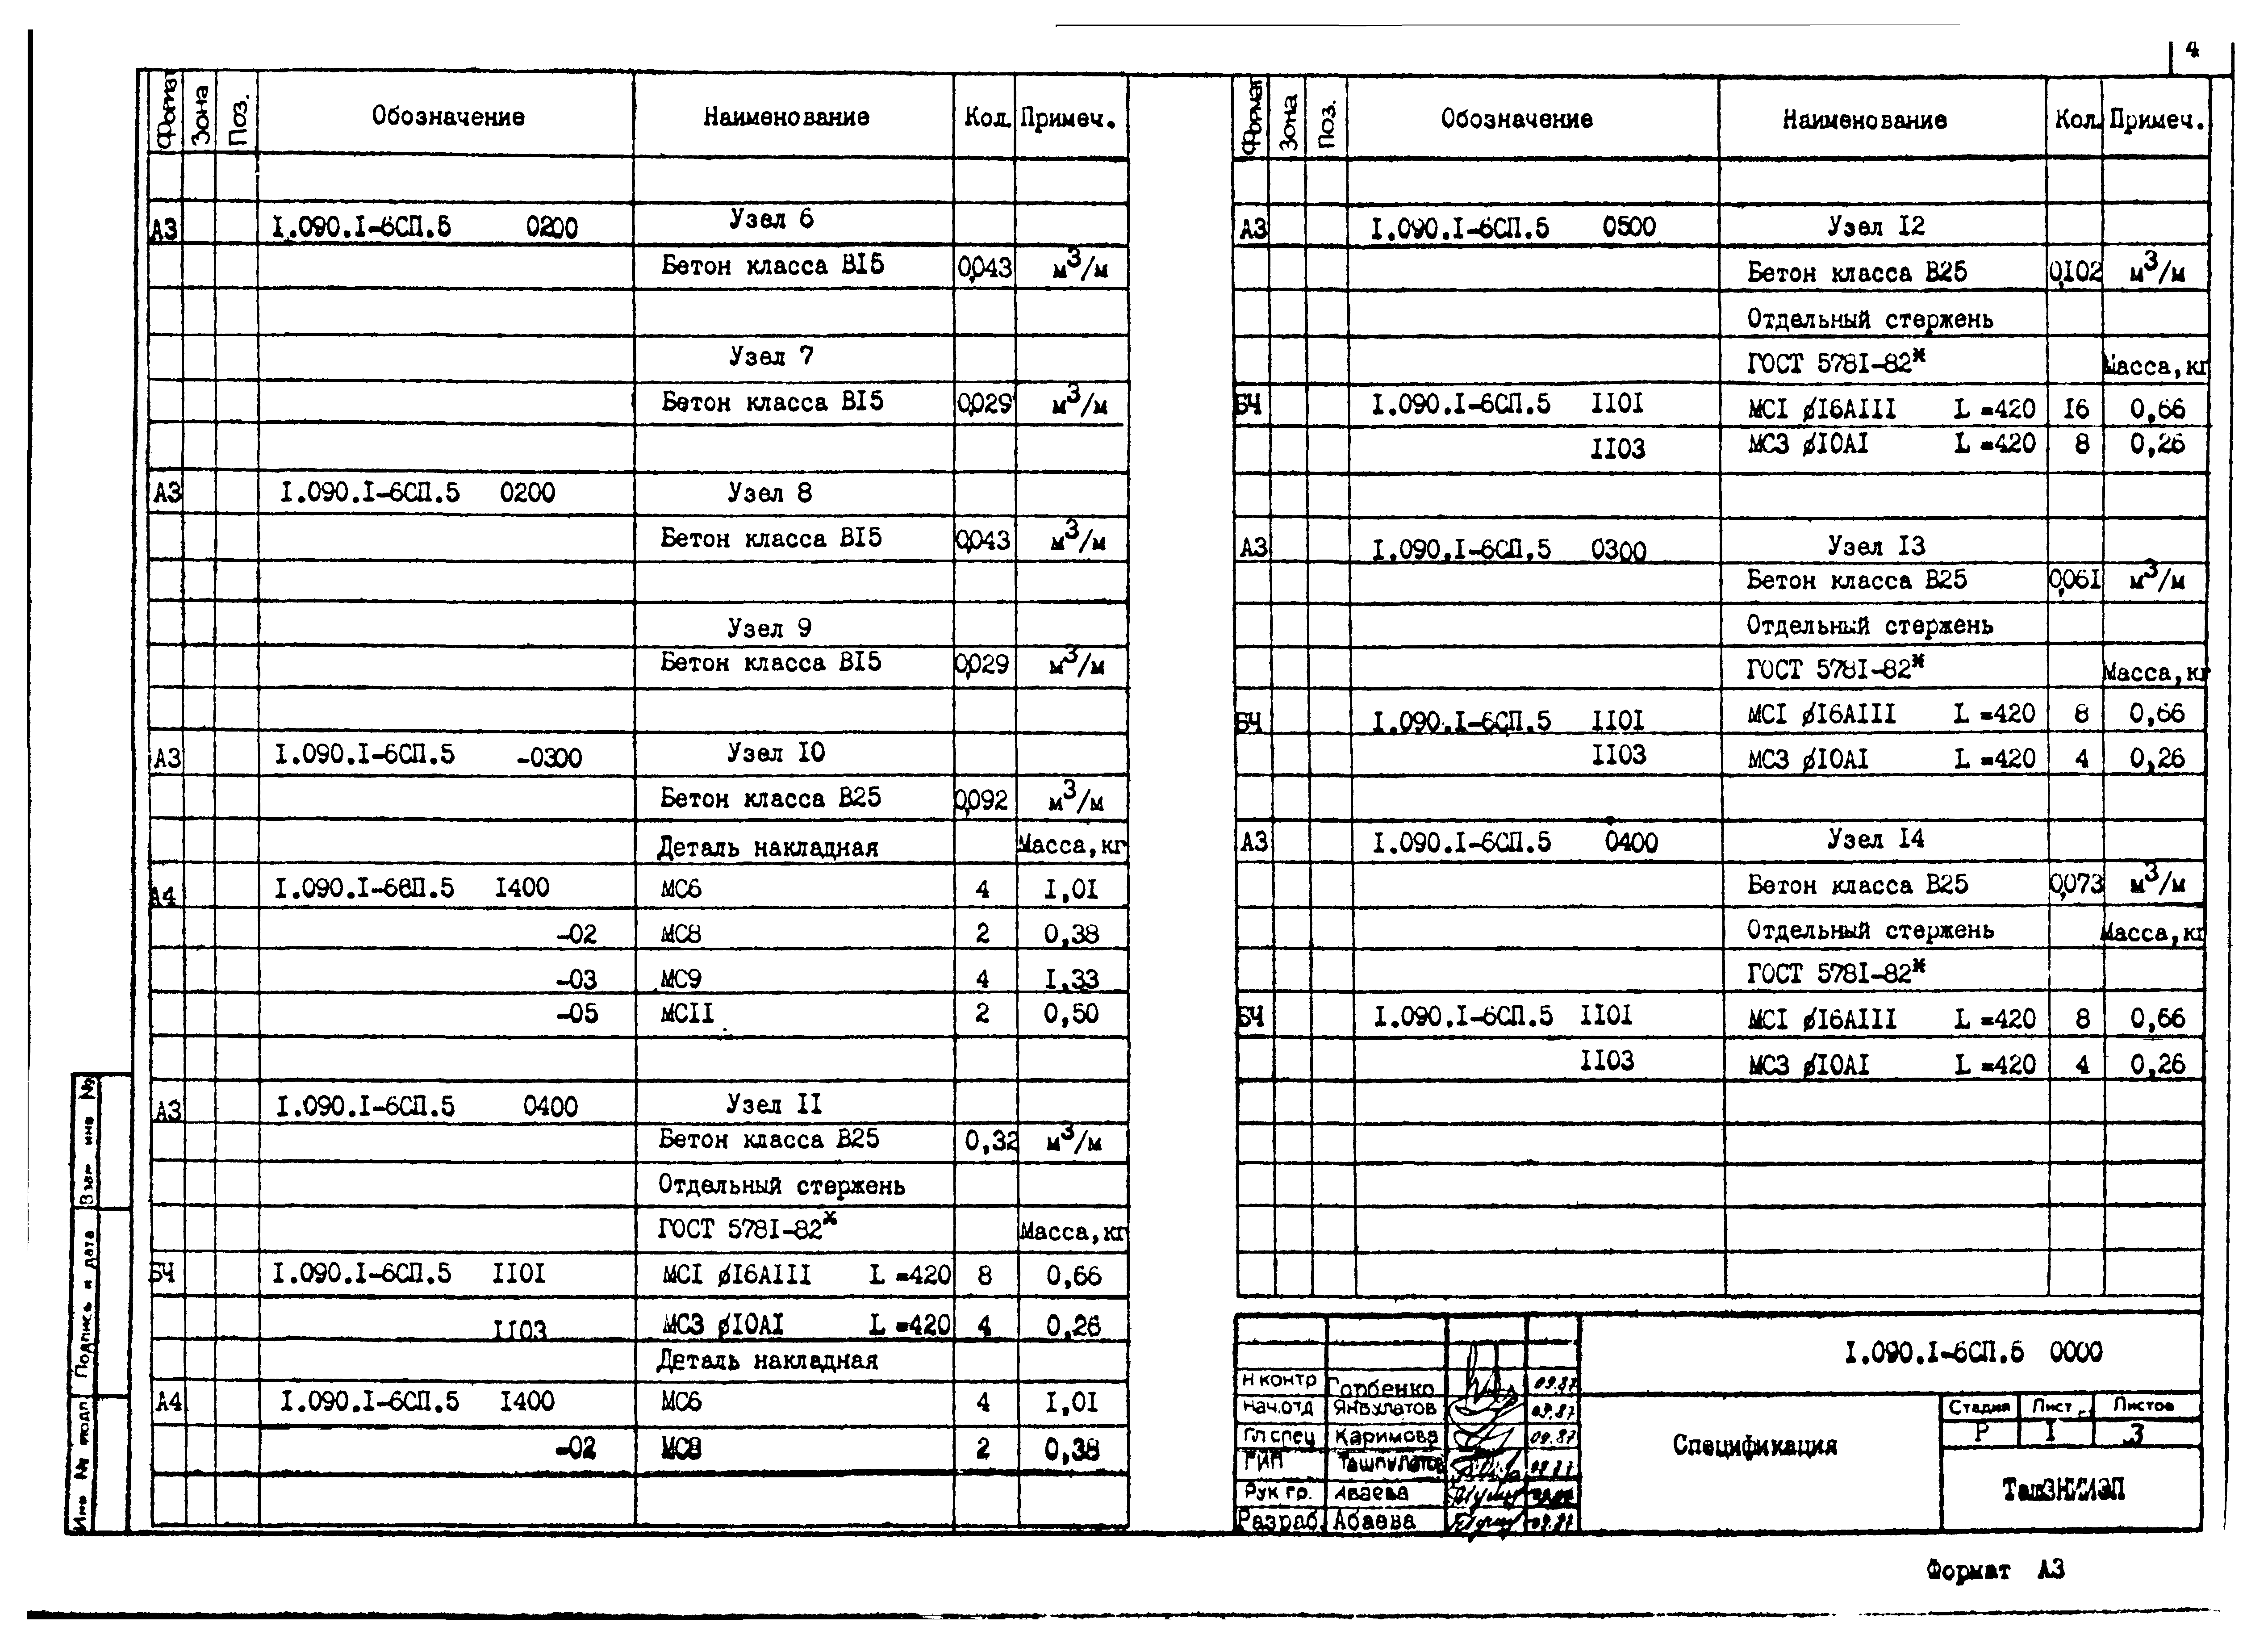 4
Формат Зона Поз. Обозначение Наименование Кол. Примеч.
А3 I.090.I-6СП.5 0200 Узел 6
Бетон класса BI5 0,043 м3/м
Узел 7
Бетон класса BI5 0,029 м3/м
А3 I.090.I-6СП.5 0200 Узел 8
Бетон класса BI5 0,043 м3/м
Узел 9
Бетон класса BI5 0,029 м3/м
А3 I.090.I-6СП.5 -0300 Узел I0
Бетон класса B25 0,092 м3/м
Деталь накладная Масса,кг
А4 I.090.I-6СП.5 I400 МС6 4 I,0I
-02 МС8 2 0,38
-03 МС9 4 I,33
-05 МСII 2 0,50
А3 I.090.I-6СП.5 0400 Узел II
Бетон класса B25 0,32 м3/м
Отдельный стержень
ГОСТ 578I-82* Масса,кг
БЧ I.090.I-6СП.5 II0I МСI ØI6АIII L =420 8 0,66
II03 МС3 ØI0АI L =420 4 0,26
Деталь накладная
А4 I.090.I-6СП.5 I400 МС6 4 I,0I
-02 МС8 2 0,38
Формат Зона Поз. Обозначение Наименование Кол. Примеч.
А3 I.090.I-6СП.5 0500 Узел I2
Бетон класса B25 0,I02 м3/м
Отдельный стержень
ГОСТ 578I-82* Масса,кг
БЧ I.090.I-6СП.5 II0I МСI ØI6АIII L =420 I6 0,66
II03 МС3 ØI0АI L =420 8 0,26
А3 I.090.I-6СП.5 0300 Узел I3
Бетон класса B25 0,06I м3/м
Отдельный стержень
ГОСТ 578I-82* Масса,кг
БЧ I.090.I-6СП.5 II0I МСI ØI6АIII L =420 8 0,66
II03 МС3 ØI0АI L =420 4 0,26
А3 I.090.I-6СП.5 0400 Узел I4
Бетон класса B25 0,073 м3/м
Отдельный стержень Масса,кг
ГОСТ 578I-82*
БЧ I.090.I-6СП.5 II0I МСI ØI6АIII L =420 8 0,66
II03 МС3 ØI0АI L =420 4 0,26
I.090.I-6СП.5 0000
Н контр Горбенко 09.87
Нач.отд Янвулатов 09.87
Гл спец Каримова 09.87
ГИП Ташпулатов 09.87
Рук гр. Аваева
Разраб. Абаева 09.87
Спецификация
Стадия Лист Листов
Р I 3
ТашЗНИИЭП
Формат А3
Инв № подл Подпись и дата Взам инв №